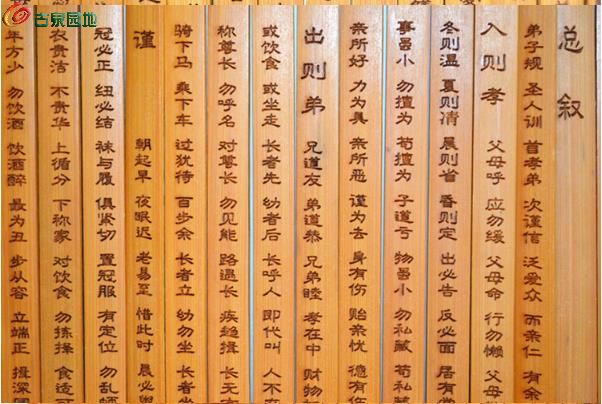 总叙
弟子规 圣人训 首孝弟 次谨信 泛爱众 而亲仁 有余
入则孝 父母呼 应勿缓 父母命 行勿懒 父母
冬则温 夏则凊 晨则省 昏则定 出必告 反必面 居有常
事虽小 勿擅为 苟擅为 子道亏 物虽小 勿私藏 苟私藏
亲所好 力为具 亲所恶 谨为去 身有伤 贻亲忧 德有伤
出则弟 兄道友 弟道恭 兄弟睦 孝在中 财物
或饮食 或坐走 长者先 幼者后 长呼人 即代叫 人不在
称尊长 勿呼名 对尊长 勿见能 路遇长 疾趋揖 长无
骑下马 乘下车 过犹待 百步余 长者立 幼勿坐 长者坐
谨 朝起早 夜眠迟 老易至 惜此时 晨必盥
冠必正 纽必结 袜与履 俱紧切 置冠服 有定位 勿乱
衣贵洁 不贵华 上循分 下称家 对饮食 勿拣择 食适可
年方少 勿饮酒 饮酒醉 最为丑 步从容 立端正 揖深
古泉园地